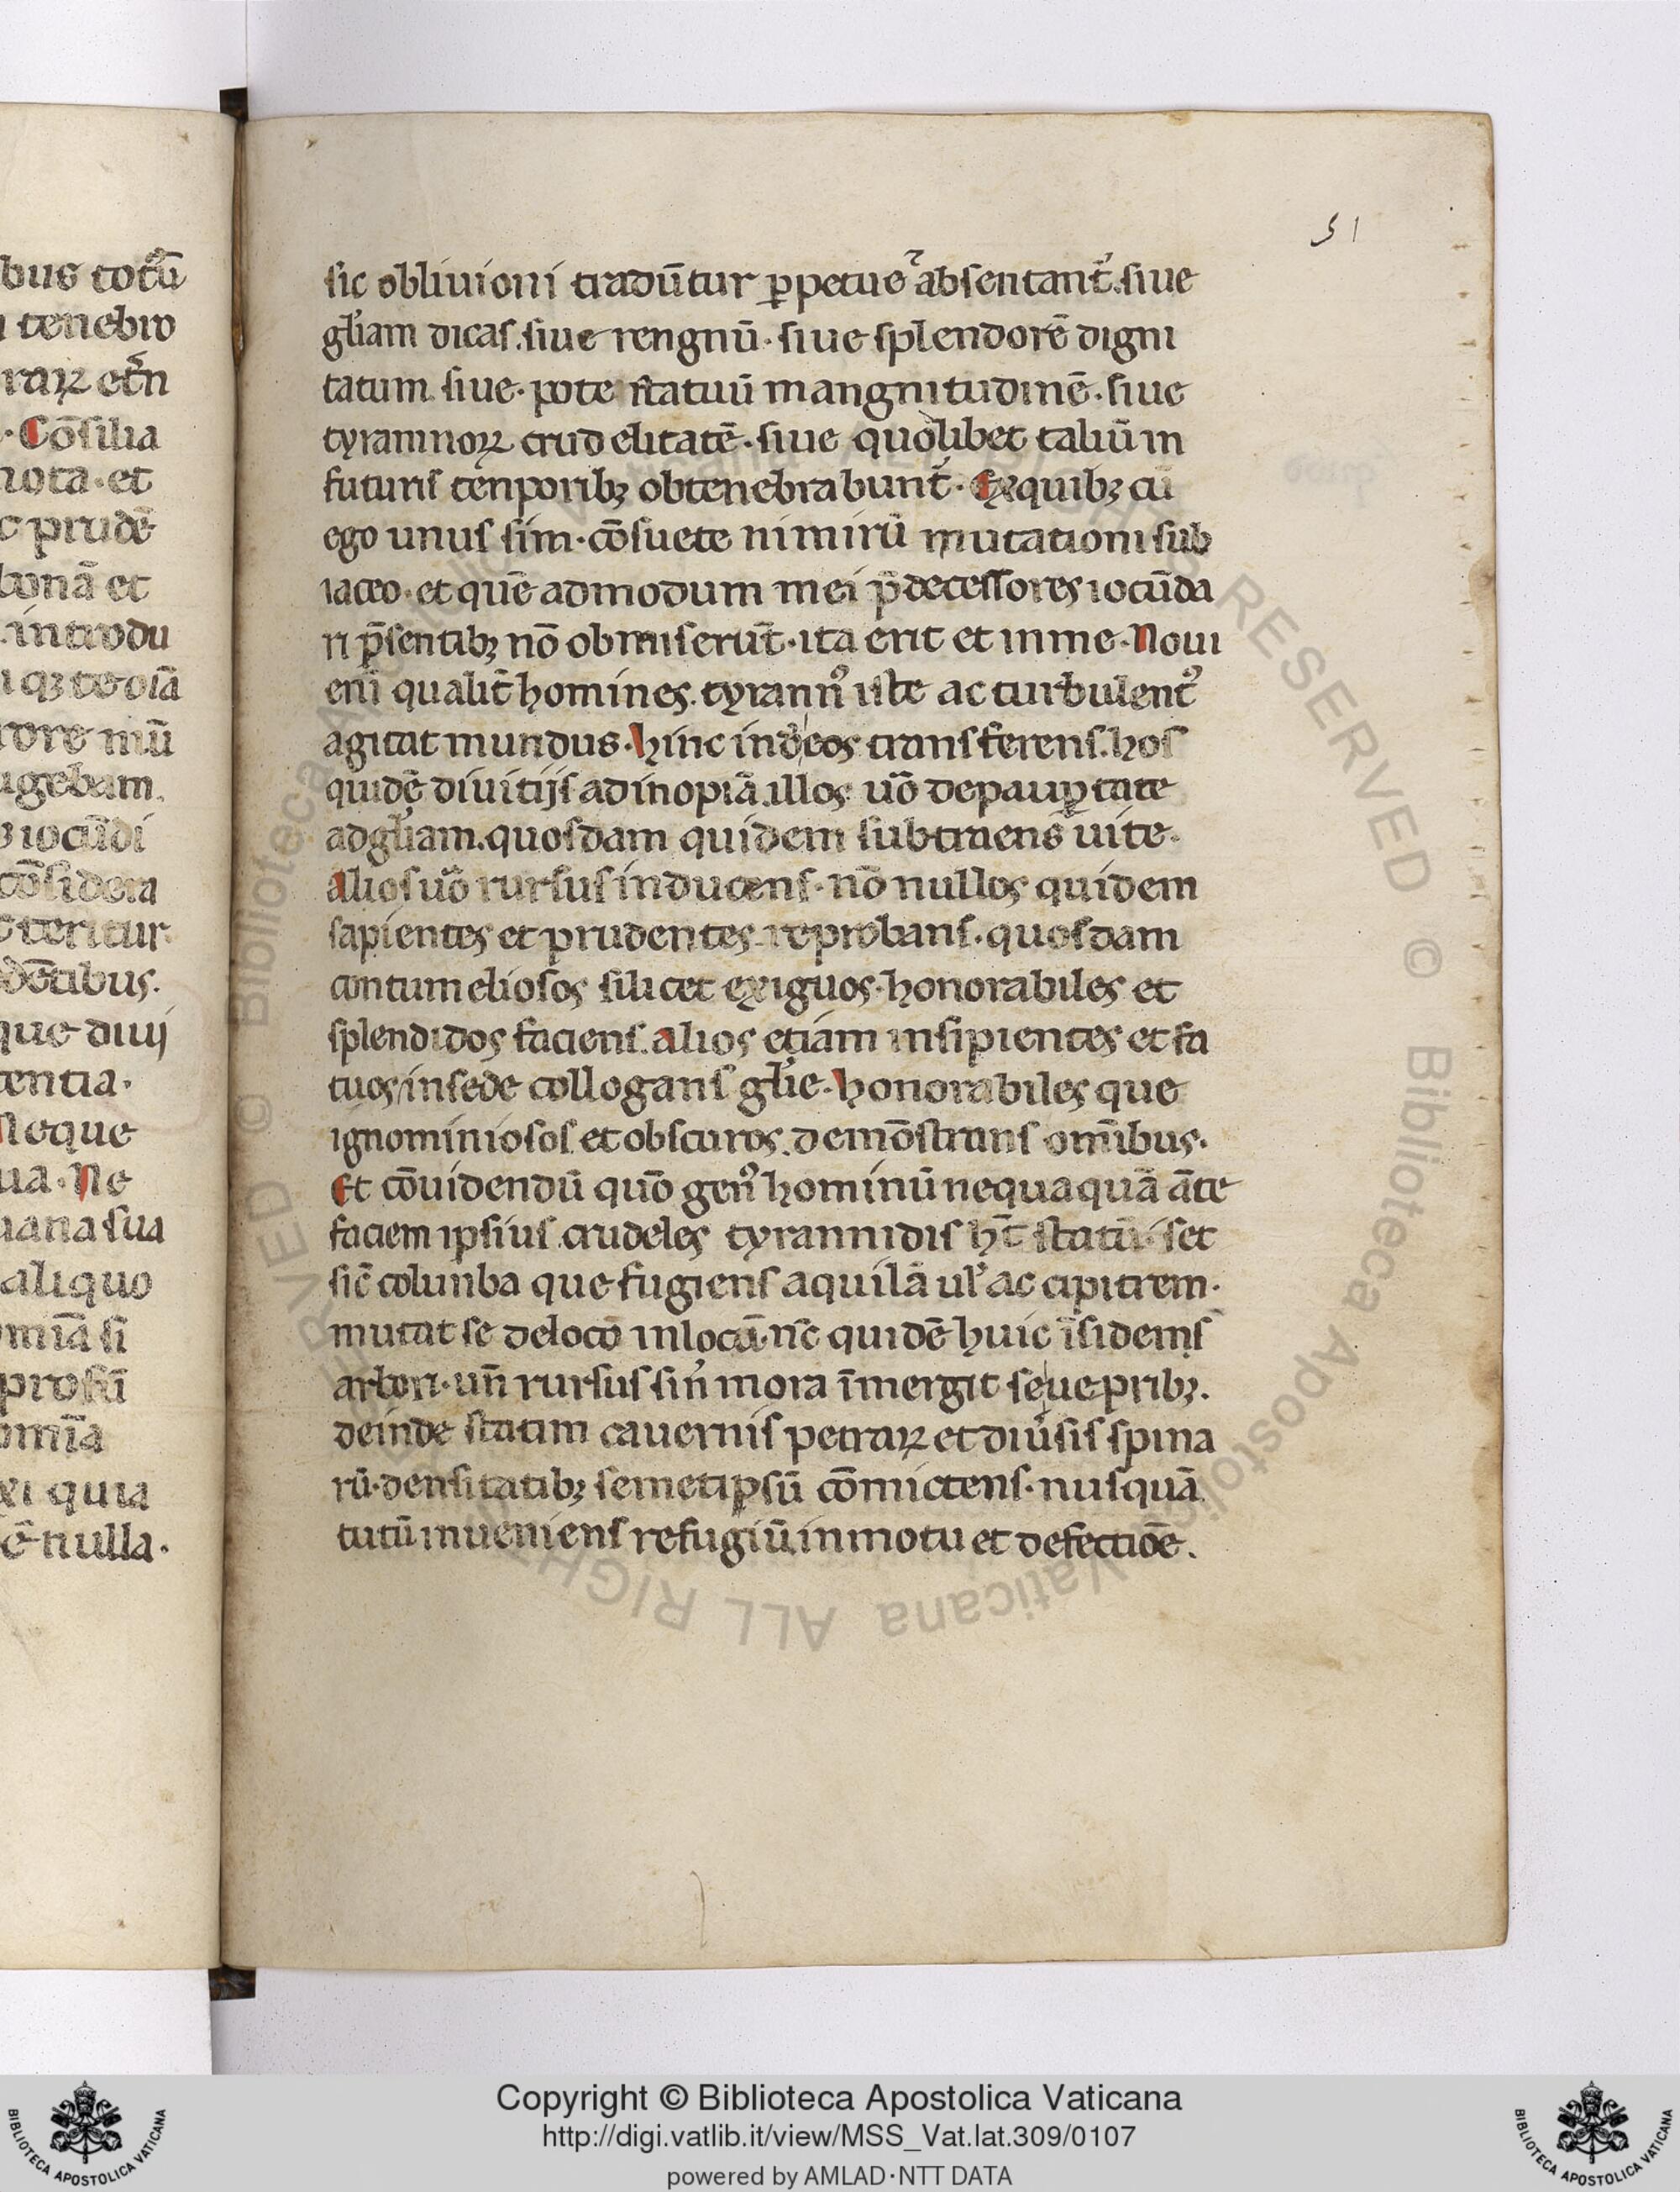 51
bus totū
tenebro
raꝝ et̄n
Cōsilia
nota·et
c prudē
bonā et
introdu
qꝫ te oīa
rore mū
ugebam.
iocūdi
cōsidera
teritur
dētibus.
que diuj
tentia·
Neque
ua·Ne
uana sua
aliquo
omīa si
profū
omīa
xi quia
ē nulla·
sic obliuioni tradūtur ꝑpetue absentant̄. siue
gl̄iam dicas. siue rengnū· siue splendorē digni
tatum siue· pote statuū mangnitudinē· siue
tyrannoꝝ crud elitatē· siue quolibet taliū in
futuris tenporibꝫ obtenebrabunt̄· Ex quibꝫ cū
ego unus sim· cōsuete nimirū mutationi sub
iaceo· et quē admodum mei p̄decessores iocūda
ri p̄sentibꝫ nō obmiserūt· ita erit et in me· Noui
enī qualit̄ homines. tyrannꝰ iste ac turbulentꝰ
agitat mundus· hinc inde eos transferens. hos
quidē diuitijs ad inopiā. illos uō de pauꝑtate
ad gl̄iam. quosdam quidem subtraens uite·
alios uō rursus inducens· nō nullos quidem
sapientes et prudentes reprobans· quosdam
contumeliosos silicet exiguos· honorabiles et
splendidos faciens. alios etiam insipientes et fa
tuos in sede collogans gl̄ie· honorabiles que
ignominiosos et obscuros. demōstrans omībus·
Et cōuidendū quō genꝰ hominū nequaquā āte
faciem ipsius crudeles tyrannidis hn̄t statū· set
sic̄ colunba que fugiens aquilā ul̓ accipitrem·
mutat se de loco in locū· nc̄ quidē huic īsidens
arbori· un̄ rursus sin̄ mora īmergit se uepribꝫ.
deinde statim cauernis petraꝝ et diūsis spina
rū· densitatibꝫ semetipsū cōmictens· nusquā
tutū inueniens refugiū. in motu et defectiōe.
Copyright © Biblioteca Apostolica Vaticana
http://digi.vatlib.it/view/MSS_Vat.lat.309/0107
powered by AMLAD·NTT DATA
BIBLIOTECA APOSTOLICA VATICANA
BIBLIOTECA APOSTOLICA VATICANA
© Biblioteca Apostolica Vaticana ALL RIGHTS RESERVED © Biblioteca Apostolica Vaticana ALL RIGHTS RESERVED